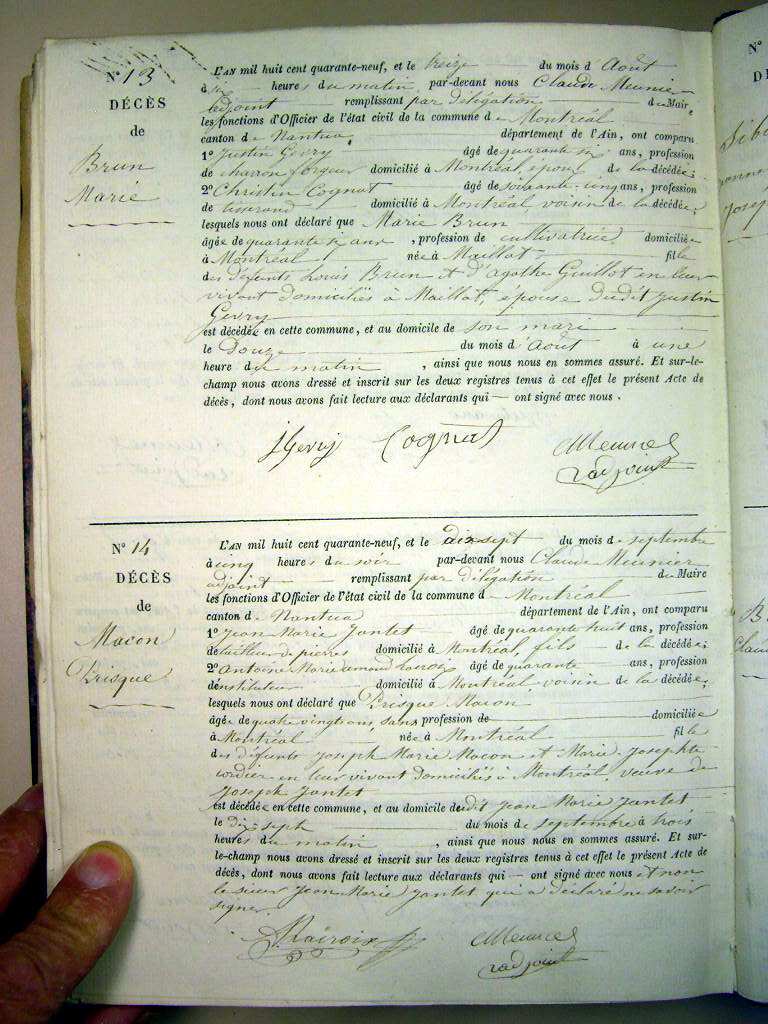 N° 13
DÉCÈS
de
Brun
Marie
L'AN mil huit cent quarante-neuf, et le treize du mois d Août
à six heures du matin, par-devant nous Claude Meunier
adjoint remplissant par délégation du Maire
les fonctions d'Officier de l'état civil de la commune de Montréal
canton de Nantua, département de l'Ain, ont comparu
1° Justin Gevry âgé de quarante six ans, profession
de charron forgeur domicilié à Montréal, époux de la décédée;
2° Christin Cognat âgé de soixante-cinq ans, profession
de tisserand domicilié à Montréal, voisin de la décédée,
lesquels nous ont déclaré que Marie Brun
âgée de quarante six ans, profession de cultivatrice domiciliée
à Montréal née à Maillat fille
des défunts Louis Brun et d'agathe Guillot en leur
vivant domiciliés à Maillat, épouse dudit Justin
Gevry
est décédée en cette commune, et au domicile de son mari
le Douze du mois d'Août à une
heure du matin, ainsi que nous nous en sommes assuré. Et sur-le-
champ nous avons dressé et inscrit sur les deux registres tenus à cet effet le présent Acte de
décès, dont nous avons fait lecture aux déclarants qui — ont signé avec nous.
J Gevry Cognat CMeunier
adjoint
N° 14
DÉCÈS
de
Macon
Prisque
L'AN mil huit cent quarante-neuf, et le dix sept du mois de septembre
à cinq heures du soir par-devant nous Claude Meunier
adjoint remplissant par délégation du Maire
les fonctions d'Officier de l'état civil de la commune d Montréal
canton de Nantua département de l'Ain, ont comparu
1° Jean Marie Jantet âgé de quarante huit ans, profession
de tailleur de pierres domicilié à Montréal, fils de la décédée;
2° Antoine Marie amand âgé de quarante ans, profession
d'instituteur domicilié à Montréal, voisin de la décédée,
lesquels nous ont déclaré que Prisque Macon
âgée de quatre vingts ans, sans profession de domiciliée
à Montréal née à Montréal fille
des défunts Joseph Marie Macon et Marie Josephte
cordier en leur vivant domiciliés à Montréal, veuve de
Joseph Jantet
est décédée en cette commune, et au domicile dudit Jean Marie Jantet
le dix sept du mois de septembre à trois
heures du matin, ainsi que nous nous en sommes assuré. Et sur-
le-champ nous avons dressé et inscrit sur les deux registres tenus à cet effet le présent Acte de
décès, dont nous avons fait lecture aux déclarants qui — ont signé avec nous et non
le sieur Jean Marie Jantet qui a déclaré ne savoir
signer.
CMeunier
adjoint
N°